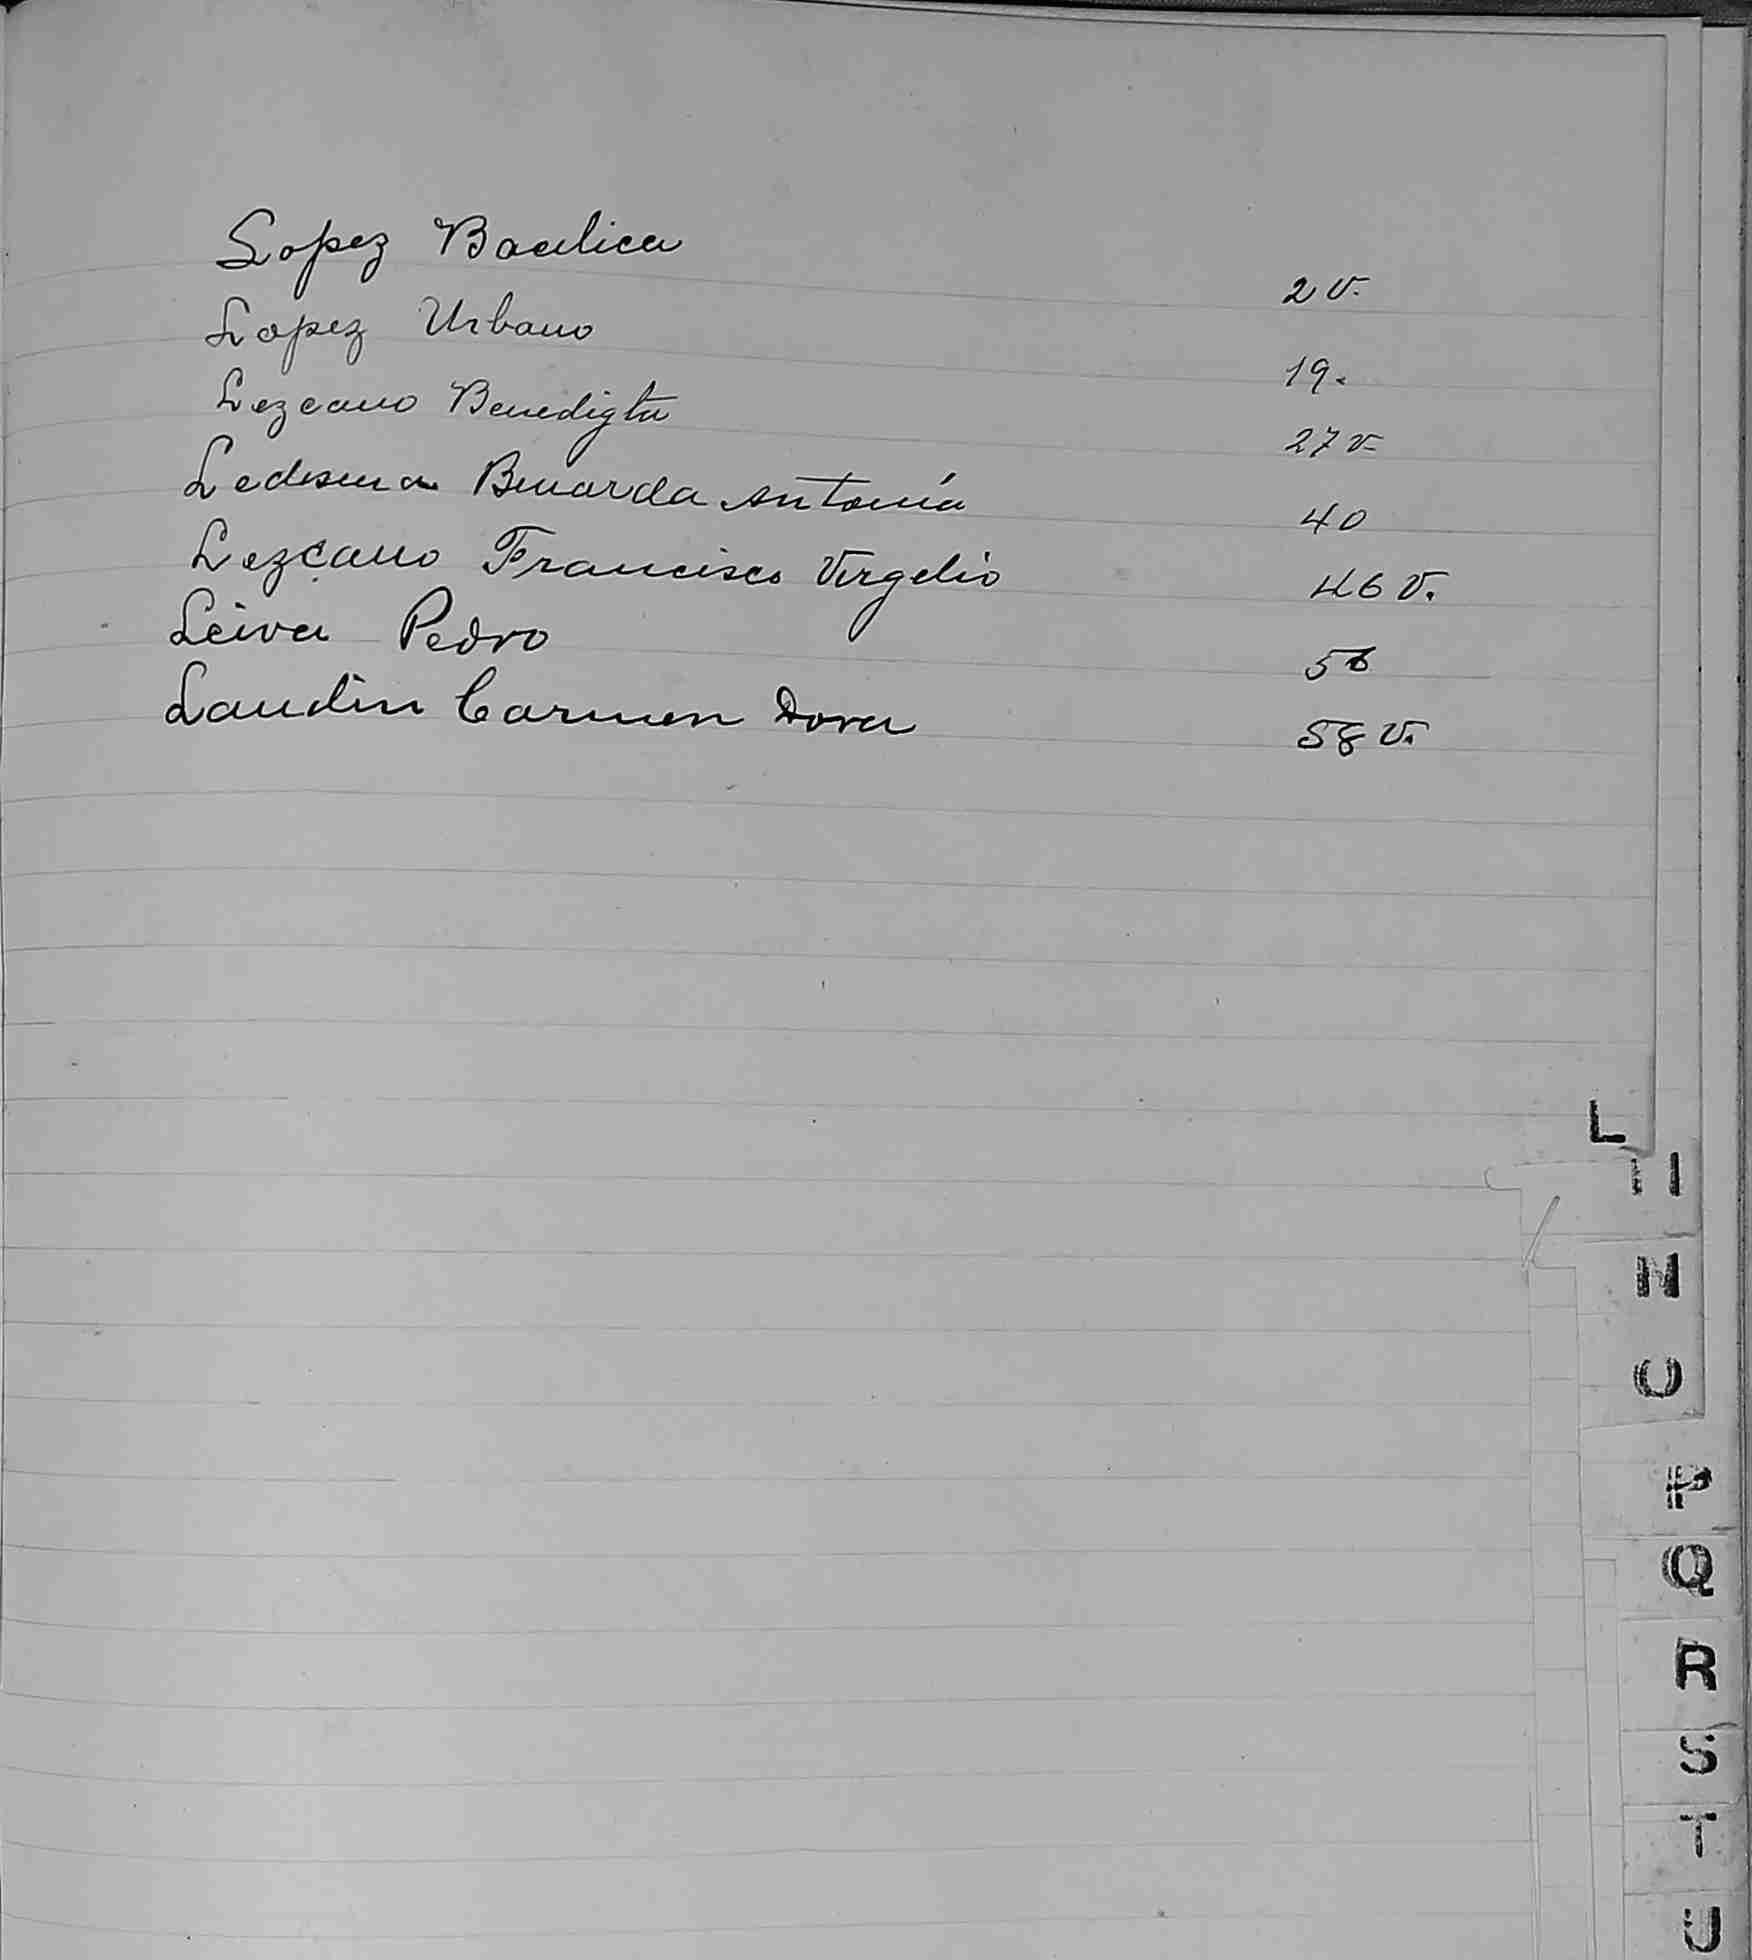 Lopez Basilica 2 v.
Lopez Urbano 19.
Lezcano Benedigta 27 v
Ledesma Bernarda Antonía 40
Lezcano Francisco Virgelio 46 v.
Leiva Pedro 56
Laudin Carmen Dora 58 v.
L
N
O
P
Q
R
S
T
U